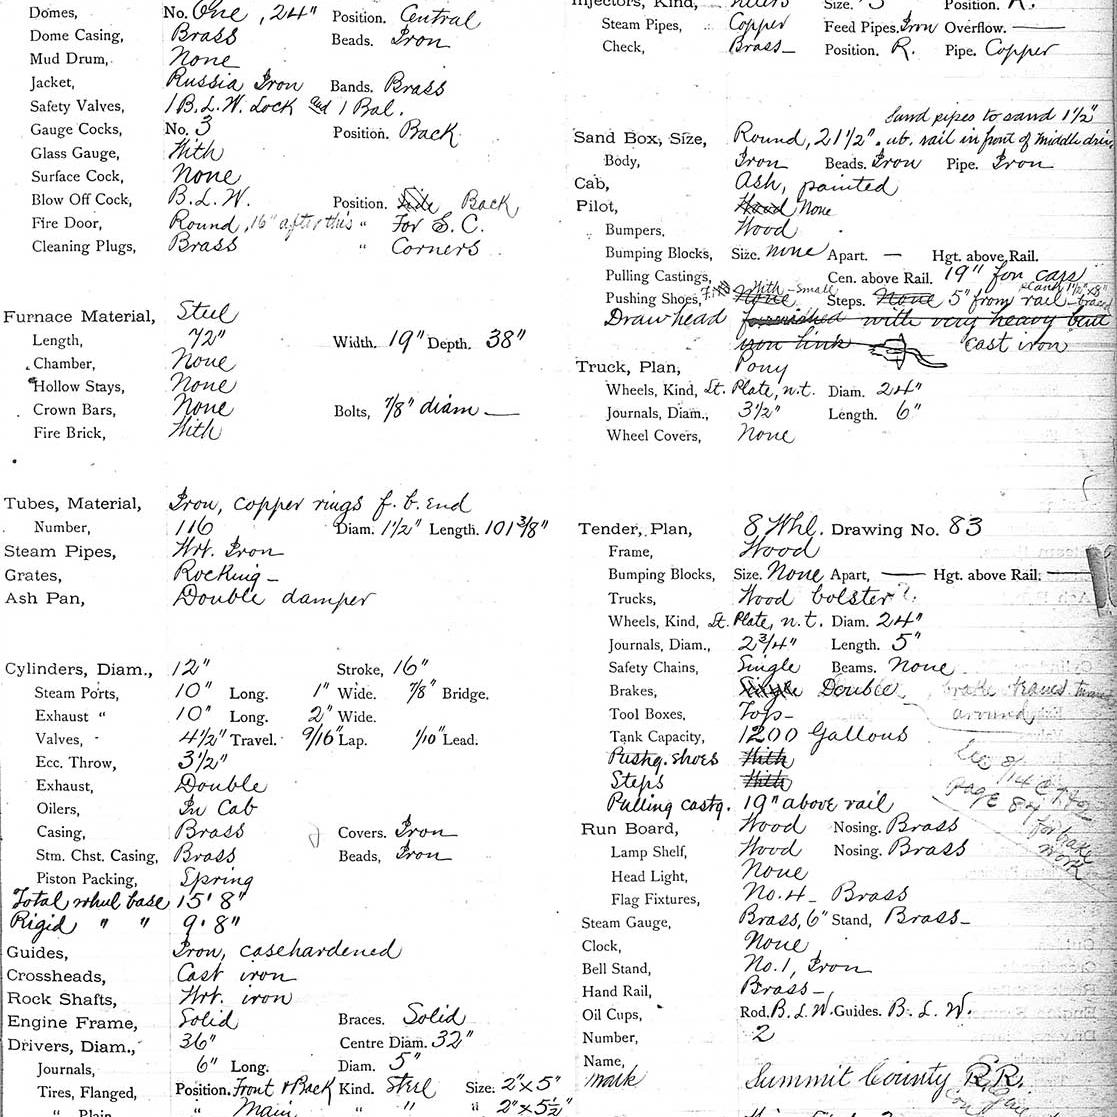 Domes, No. One, 24" Position. Central
Dome Casing, Brass Beads. Iron
Mud Drum, None
Jacket, Russia Iron Bands. Brass
Safety Valves, 1 B.L.W. Lock and 1 Bal.
Gauge Cocks, No. 3 Position. Back
Glass Gauge, With
Surface Cock, None
Blow Off Cock, B.L.W. Position. Side Back
Fire Door, Round, 16" after this " For S.C.
Cleaning Plugs, Brass " Corners
Furnace Material, Steel
Length, 72" Width. 19" Depth. 38"
Chamber, None
Hollow Stays, None
Crown Bars, None Bolts, 7/8" diam —
Fire Brick, With
Tubes, Material, Iron, copper rings f. b. End
Number, 116 Diam. 1½" Length. 101 3/8"
Steam Pipes, Wrt. Iron
Grates, Rocking –
Ash Pan, Double damper
Cylinders, Diam., 12" Stroke, 16"
Steam Ports, 10" Long. 1" Wide. 7/8" Bridge.
Exhaust " 10" Long. 2" Wide.
Valves, 4½" Travel. 9/16" Lap. 1/10" Lead.
Ecc. Throw, 3½"
Exhaust, Double
Oilers, In Cab
Casing, Brass Covers. Iron
Stm. Chst. Casing, Brass Beads, Iron
Piston Packing, Spring
Total whul base 15' 8"
Rigid " " 9' 8"
Guides, Iron, casehardened
Crossheads, Cast iron
Rock Shafts, Wrt. iron
Engine Frame, Solid Braces. Solid
Drivers, Diam., 36" Centre Diam. 32"
Journals, 6" Long. Diam. 5"
Tires, Flanged, Position. Front & Back Kind. Steel Size. 2" x 5"
" Plain " Main " " " 2" x 5½"
Injectors, Kind, Size. 3 Position. R.
Steam Pipes, Copper Feed Pipes. Iron Overflow. —
Check, Brass – Position. R. Pipe. Copper
Sand pipes to sand 1½"
Sand Box, Size, Round, 21½". ab. rail in front of middle driv.
Body, Iron Beads. Iron Pipe. Iron
Cab, Ash, painted
Pilot, Wood None
Bumpers, Wood
Bumping Blocks, Size. None Apart. — Hgt. above Rail.
Pulling Castings, Cen. above Rail. 19" for cars
Pushing Shoes, None With – small Steps. None 5" from rail
Drawhead furnished with very heavy but
iron link cast iron
Truck, Plan, Pony
Wheels, Kind, St. Plate, n.t. Diam. 24"
Journals, Diam., 3½" Length. 6"
Wheel Covers, None
Tender, Plan, 8 Whl. Drawing No. 83
Frame, Wood
Bumping Blocks, Size. None Apart, — Hgt. above Rail. —
Trucks, Wood bolster
Wheels, Kind, St. Plate, n.t. Diam. 24"
Journals, Diam., 2¾" Length. 5"
Safety Chains, Single Beams. None
Brakes, Single Double
around
Tool Boxes, Top –
Tank Capacity, 1200 Gallons
Pushg. shoes With
Steps With
Pulling castg. 19" above rail
See 8/14
Page 84
for brake
work
Run Board, Wood Nosing. Brass
Lamp Shelf, Wood Nosing. Brass
Head Light, None
Flag Fixtures, No. 4 – Brass
Steam Gauge, Brass, 6" Stand, Brass –
Clock, None
Bell Stand, No. 1, Iron
Hand Rail, Brass –
Oil Cups, Rod. B.L.W. Guides. B.L.W.
Number, 2
Name,
Mark Summit County R.R.